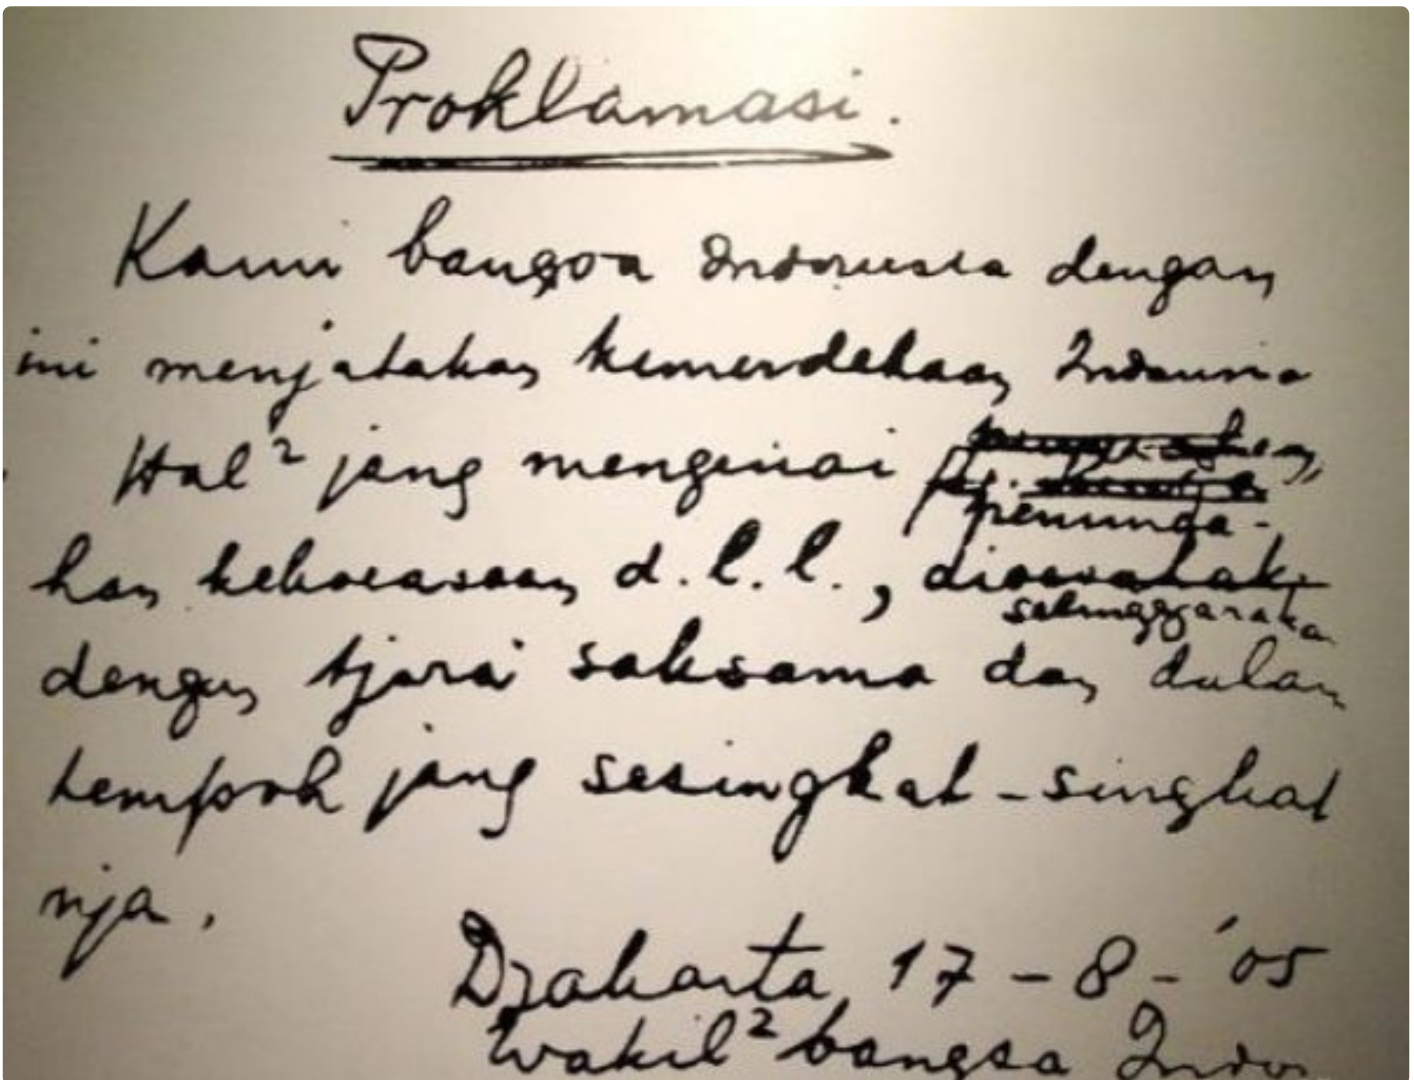 Proklamasi.
Kami bangsa Indonesia dengan
ini menjatakan kemerdekaan Indonesia
Hal² jang mengenai
peminda-
han kekoeasaan d.l.l.,
diselenggarakan
dengan tjara saksama dan dalam
tempoh jang sesingkat-singkat
nja.
Djakarta, 17 - 8 - '05
Wakil² bangsa Indon